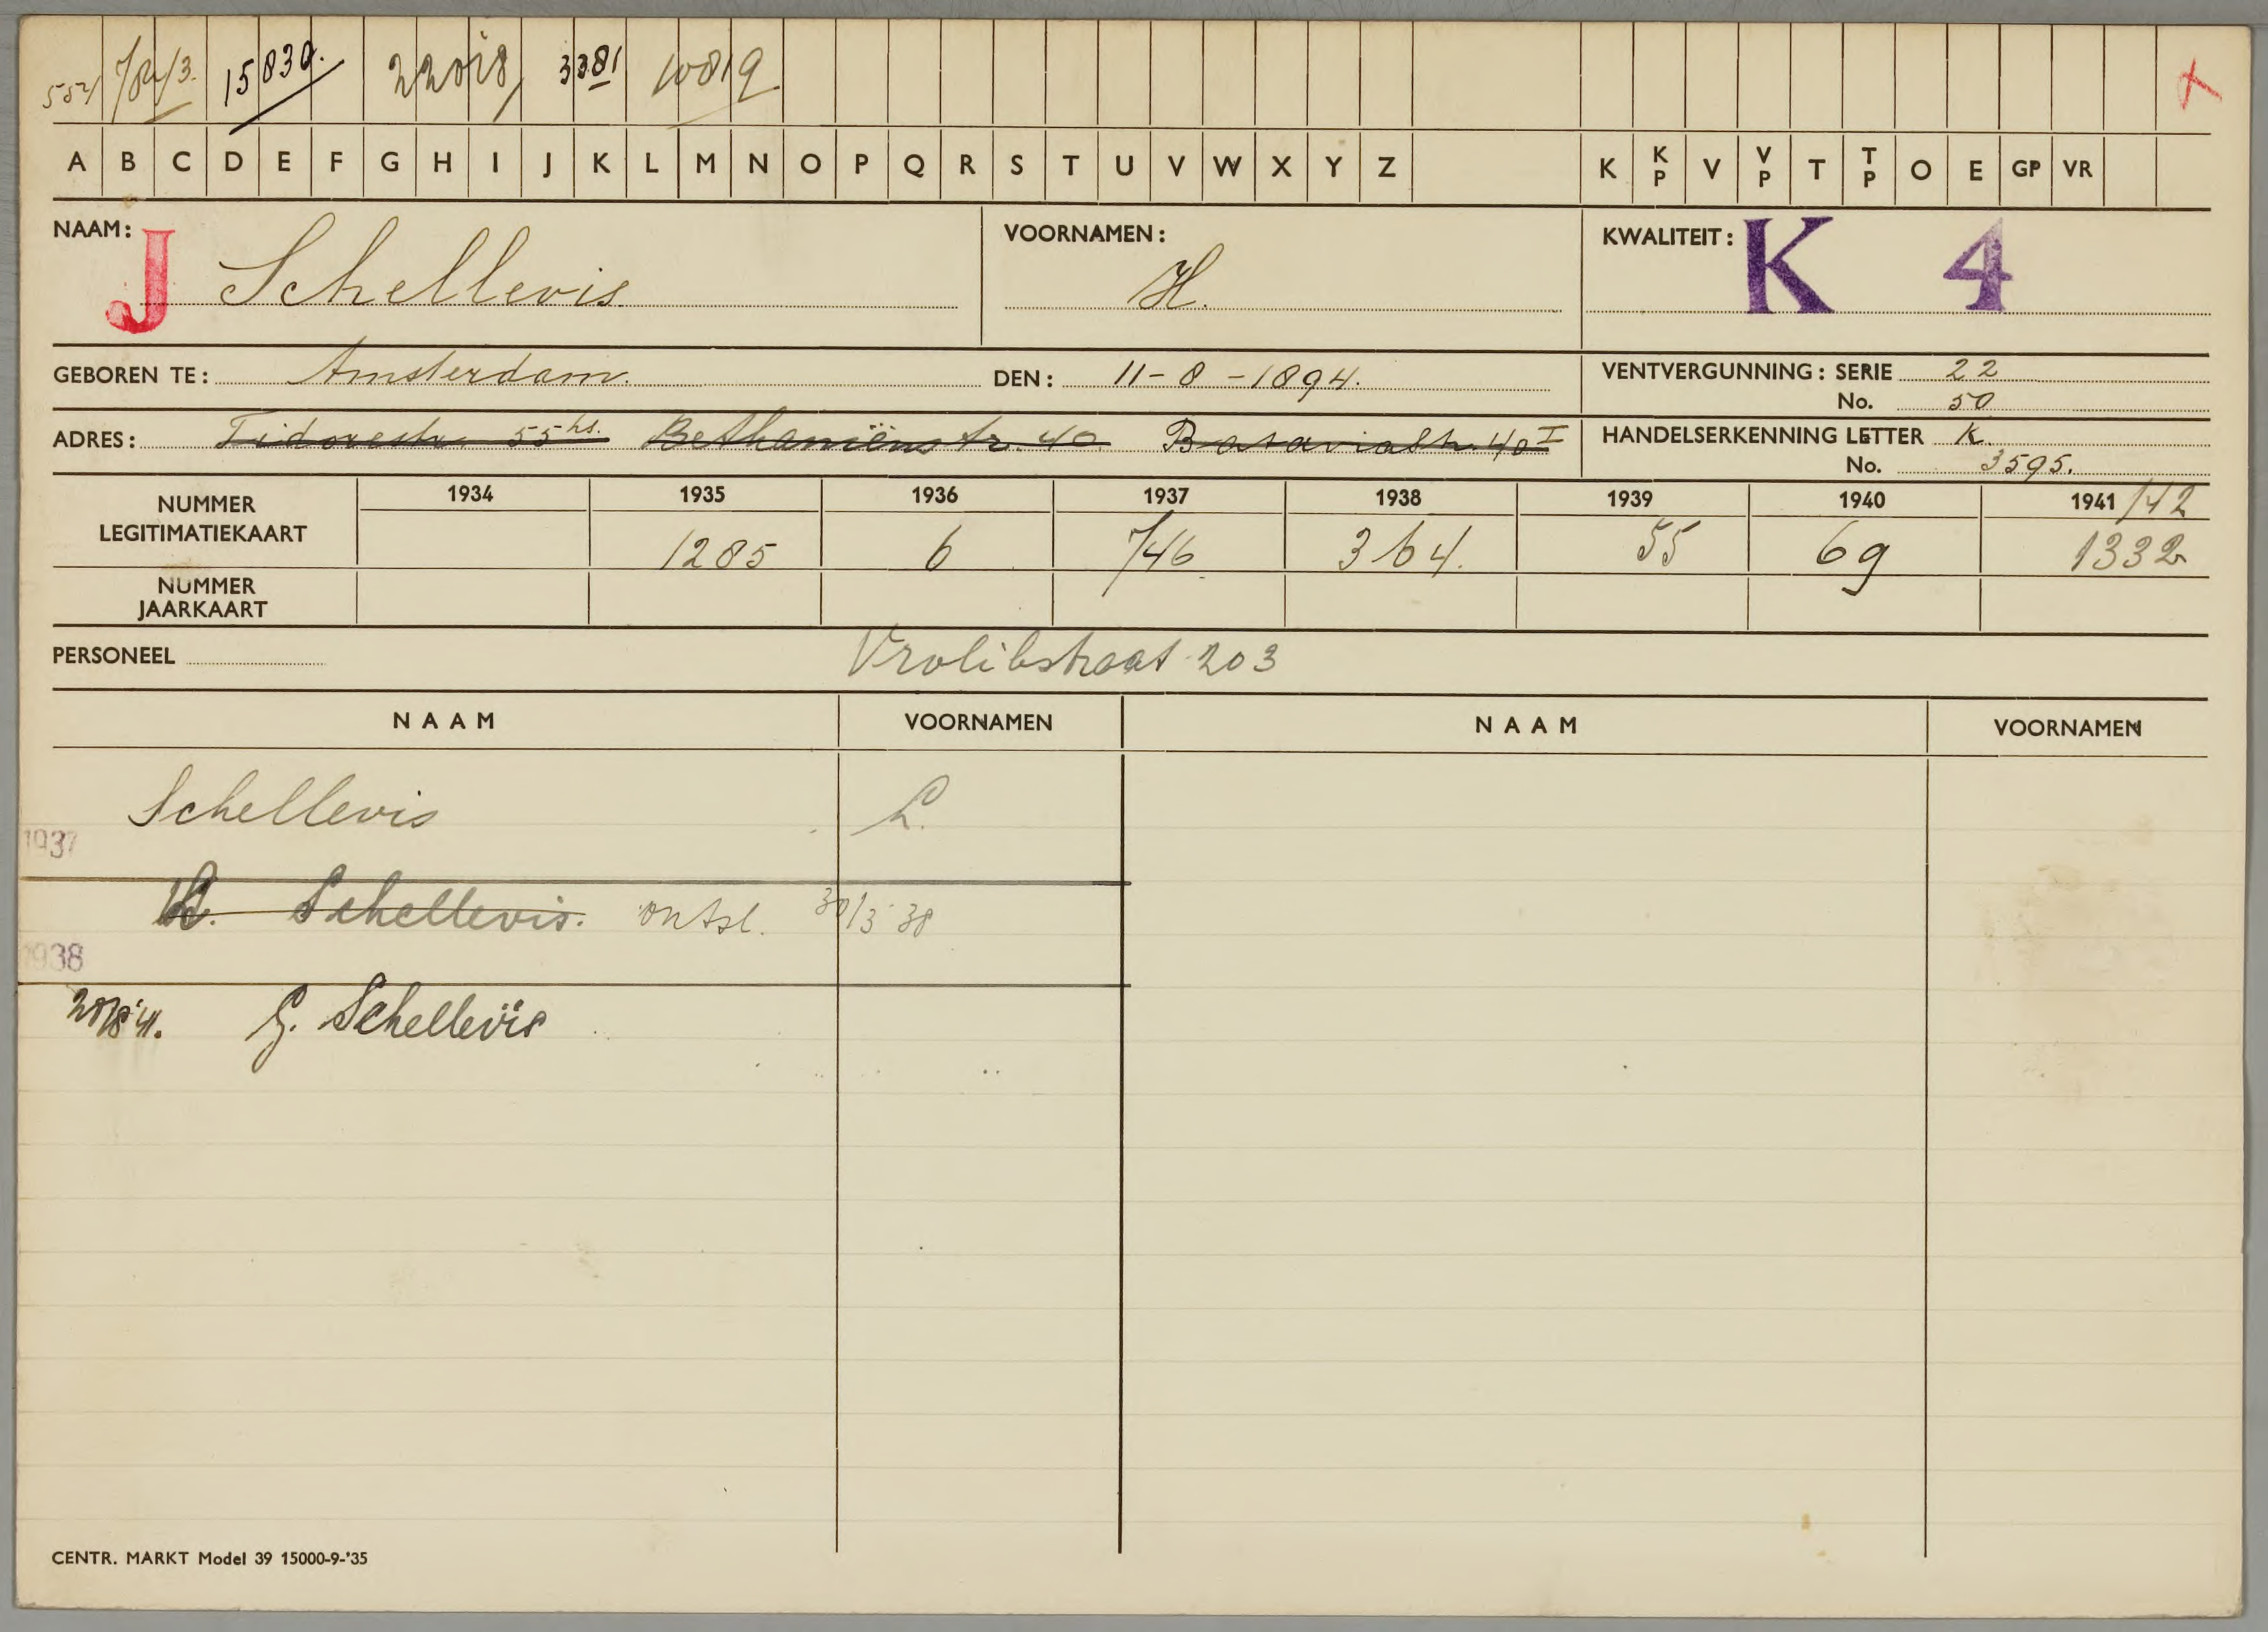 15830. 22018 3381 10819 X
A B C D E F G H I J K L M N O P Q R S T U V W X Y Z K KP V VP T TP O E GP VR
NAAM: J Schellevis VOORNAMEN: H. KWALITEIT: K 4
GEBOREN TE: Amsterdam. DEN: 11-8-1894. VENTVERGUNNING: SERIE 22
No. 50
ADRES: Tidorestr. 55 hs. Bethaniënstr. 40 Bataviastr. 40 I HANDELSERKENNING LETTER K.
No. 3595.
NUMMER LEGITIMATIEKAART 1934 1935 1936 1937 1938 1939 1940 1941/42
1285 6 746 364. 55 69 1332
NUMMER JAARKAART
PERSONEEL Vrolikstraat 203
NAAM VOORNAMEN NAAM VOORNAMEN
Schellevis L.
1937
Schellevis. ontsl. 30/3 38
1938
G. Schellevis
CENTR. MARKT Model 39 15000-9-'35